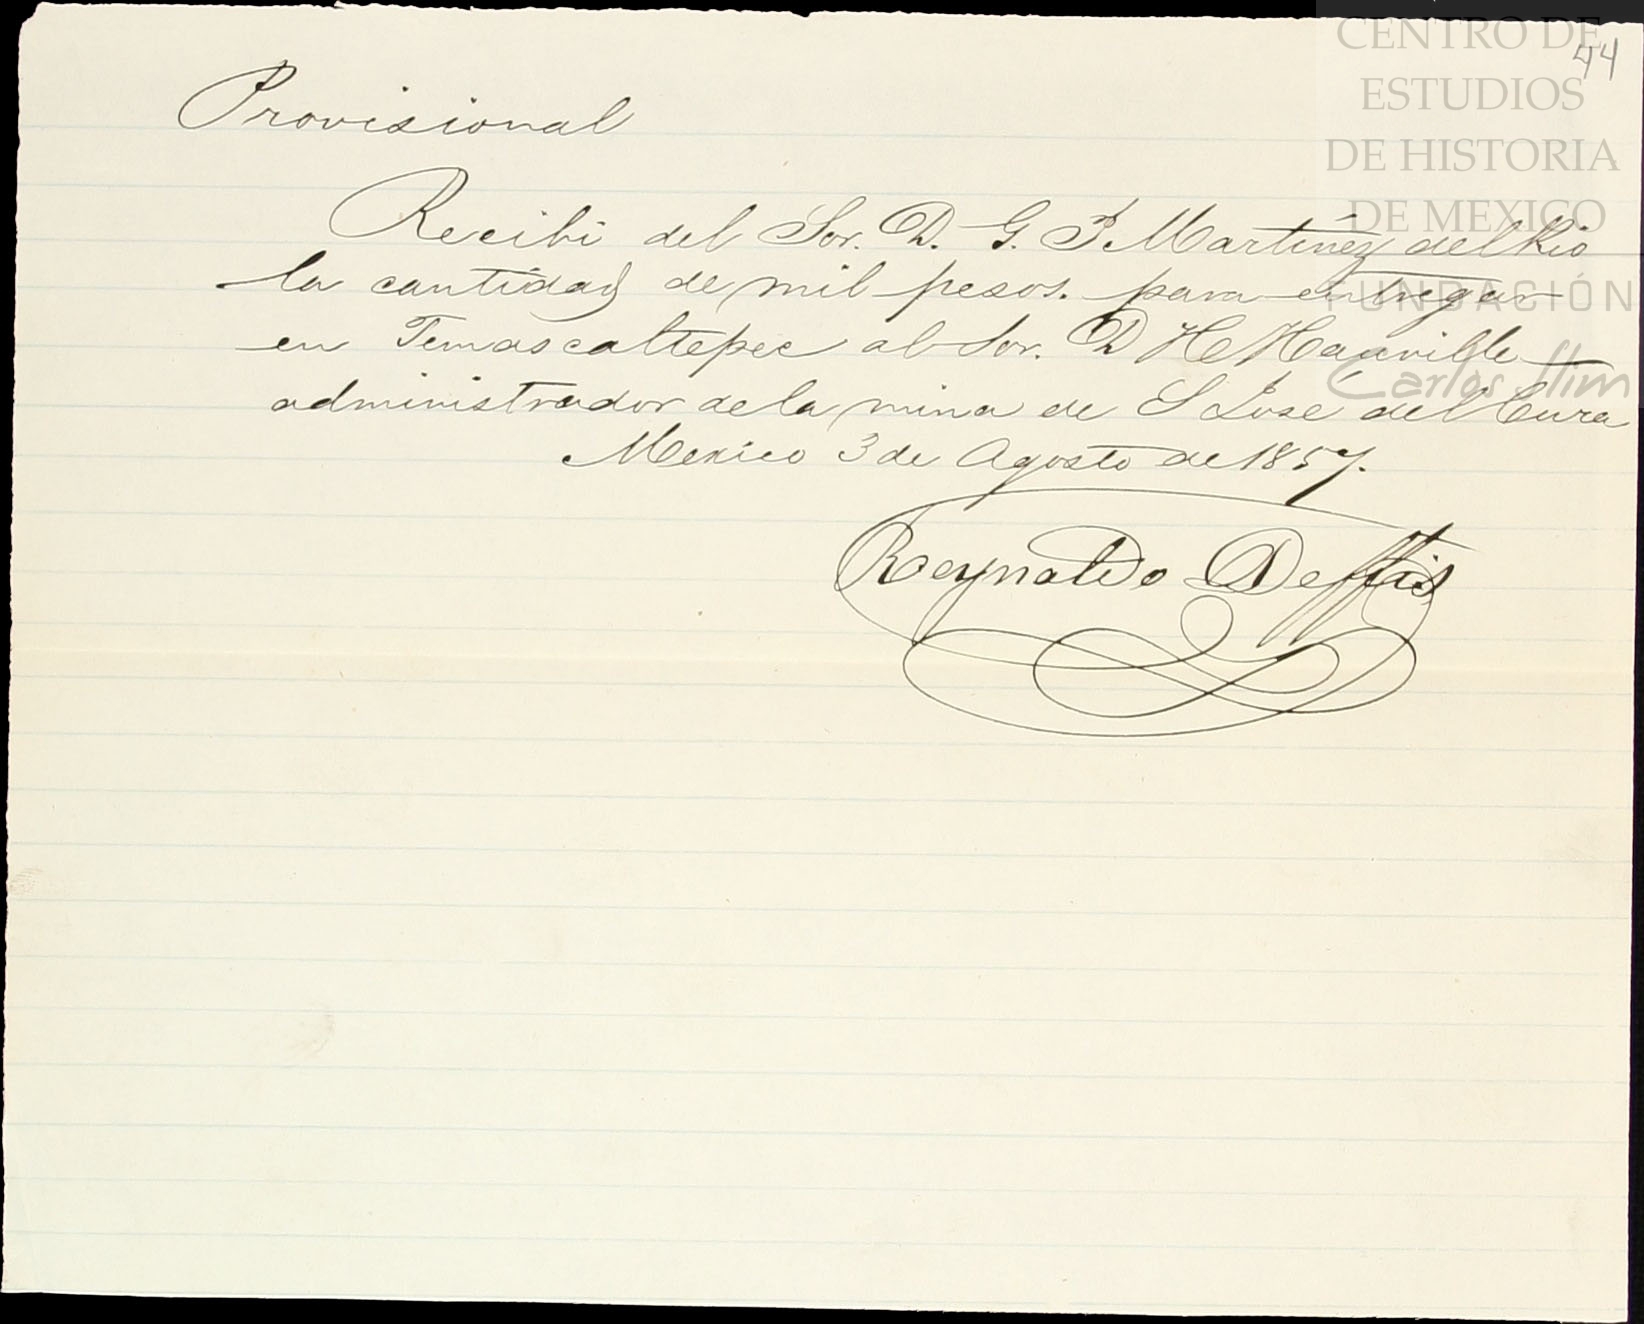 CENTRO DE
ESTUDIOS
DE HISTORIA
DE MEXICO
FUNDACIÓN
Carlos Slim
44
Provisional
Recibi del Sor. D. G. P Martinez del Rio
la cantidad de mil pesos. para entregar
en Temascaltepec al Sor. D H
administrador de la mina de S Jose del Cura
Mexico 3 de Agosto de 1857.
Reynaldo Deffis